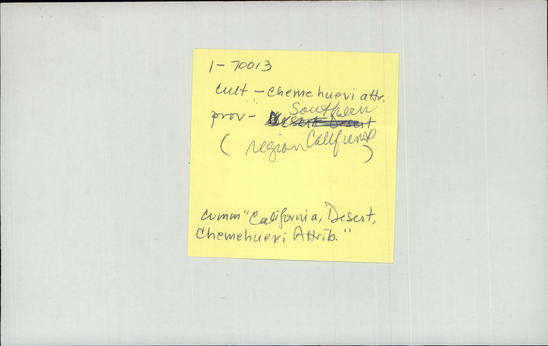 1-70013
cult - Chemehuevi attr.
prov- Southern
(region California)
comm "California, Desert,
Chemehuevi Attrib."